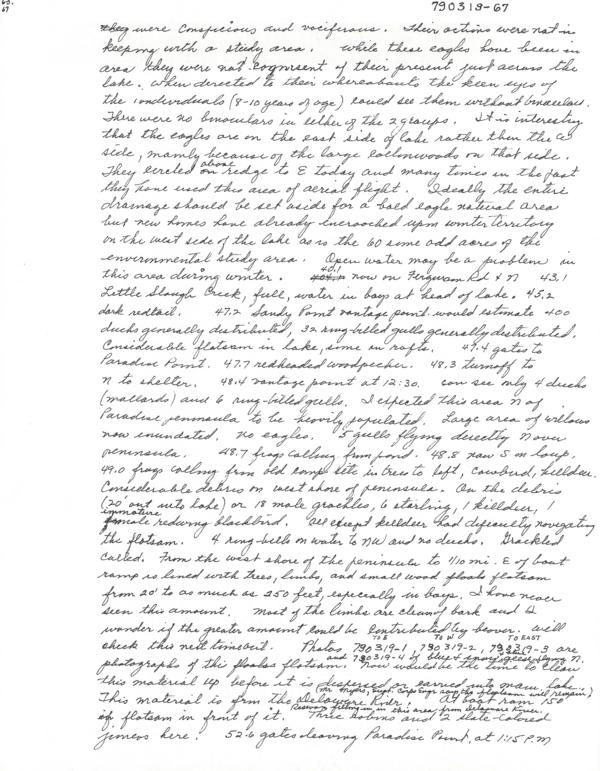 67
790319-67
they were conspicious and vociferous. Their actions were not in
keeping with a study area. While these eagles have been in
area they were not cognisent of their present just across the
lake. When directed to their whereabouts the keen eyes of
the individuals (8-10 years of age) could see them without binoculars.
There were no binoculars in either of the 2 groups. It is interesting
that the eagles are on the east side of lake rather than the W
side, mainly because of the large cottonwoods on that side.
They circled about on ridge to E today and many times in the past
they have used this area of aerial flight. Ideally the entire
drainage should be set aside for a bald eagle natural area
but new homes have already incroached upon winter territory
on the west side of the lake as is the 60 some odd acres of the
environmental study area. Open water may be a problem in
this area during winter. 40.1 now on Ferguson Rd & N 43.1
Little Slough Creek, full, water in bays at head of lake. 45.2
dark redtail. 47.2 Sandy Point vantage point would estimate 400
ducks generally distributed, 32 ring-billed gulls generally distributed.
Considerable flotsam in lake, some in rafts. 47.4 gates to
Paradise Point. 47.7 redheaded woodpecker. 48.3 turnoff to
N to shelter. 48.4 vantage point at 12:30. can see only 4 ducks
(mallards) and 6 ring-billed gulls. I expected this area N of
Paradise peninsula to be heavily populated. Large area of willows
now inundated. no eagles. 5 gulls flying directly N over
peninsula. 48.7 frogs calling from pond. 48.8 now S on loup.
49.0 frogs calling from old camp site in trees to left, cowbird, killdeer.
Considerable debris on west shore of peninsula. On the debris
(20' out into lake) are 18 male grackles, 6 starling, 1 killdeer, 1
immature male redwing blackbird. All except killdeer had difficulty navigating
the flotsam. 4 ring-bills on water to NW and no ducks. Grackles
called. From the west shore of the peninsula to 1/10 mi. E of boat
ramp is lined with trees, limbs, and small wood floats flotsam
from 20' to as much as 250 feet, especially in bays. I have never
seen this amount. Most of the limbs are clean of bark and I
wonder if the greater amount could be contributed by beaver. will
check this next time out. Photos 790319-1, 790319-2, 790319-3 are
TO E TO W TO EAST
and 790319-4 of blue & snow geese flying N.
photographs of the floating flotsam. Now would be the time to clean
this material up before it is dispersed or carried into main lake.
(Mr. Myers, Corps says the flotsam will remain)
This material is from the Delaware River. At boat ramp 150'
Reservoir filling in in this area from Delaware River.
of flotsam in front of it. Three robins and 2 slate-colored
juncos here. 52.6 gates leaving Paradise Point, at 1:15 P.M